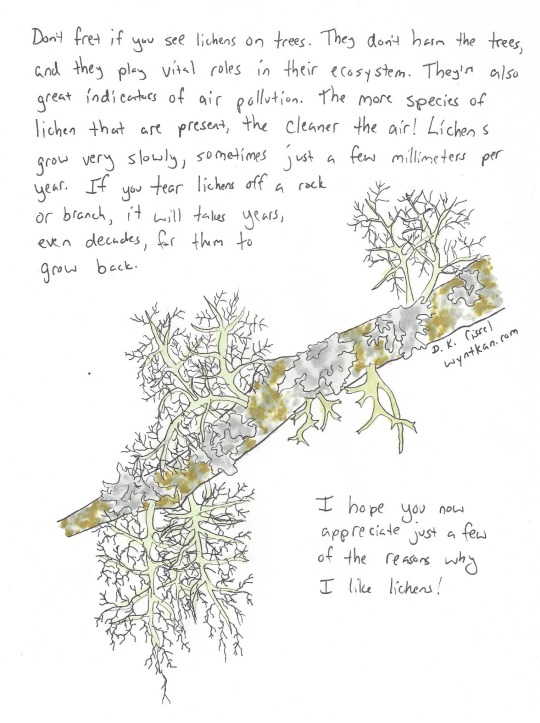 Don't fret if you see lichens on trees. They don't harm the trees,
and they play vital roles in their ecosystem. They'r also
great indicators of air pollution. The more species of
lichen that are present, the cleaner the air! Lichens
grow very slowly, sometimes just a few millimeters per
year. If you tear lichens off a rock
or branch, it will takes years,
even decades, for them to
grow back.
D. K. Cissel
wyntkan.com
I hope you now
appreciate just a few
of the reasons why
I like lichens!